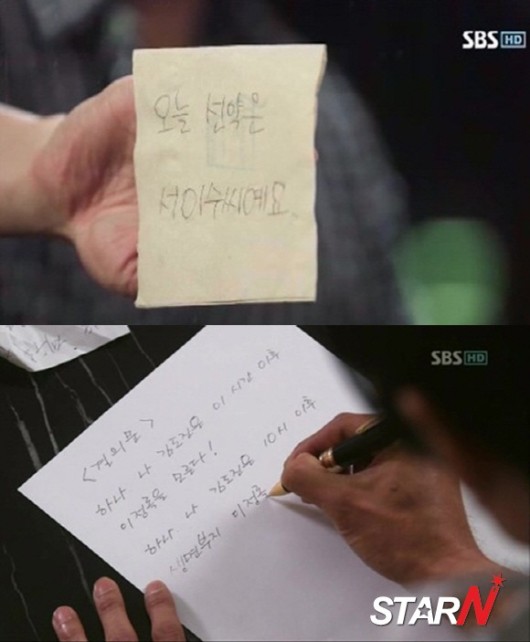 SBS HD
오늘 선약은
서이수씨예요
SBS HD
<결의문>
하나 나 김도진은 이 시간 이후
이정록을
하나 나 김도진은 10시 이후
생면부지 이정록
STARN